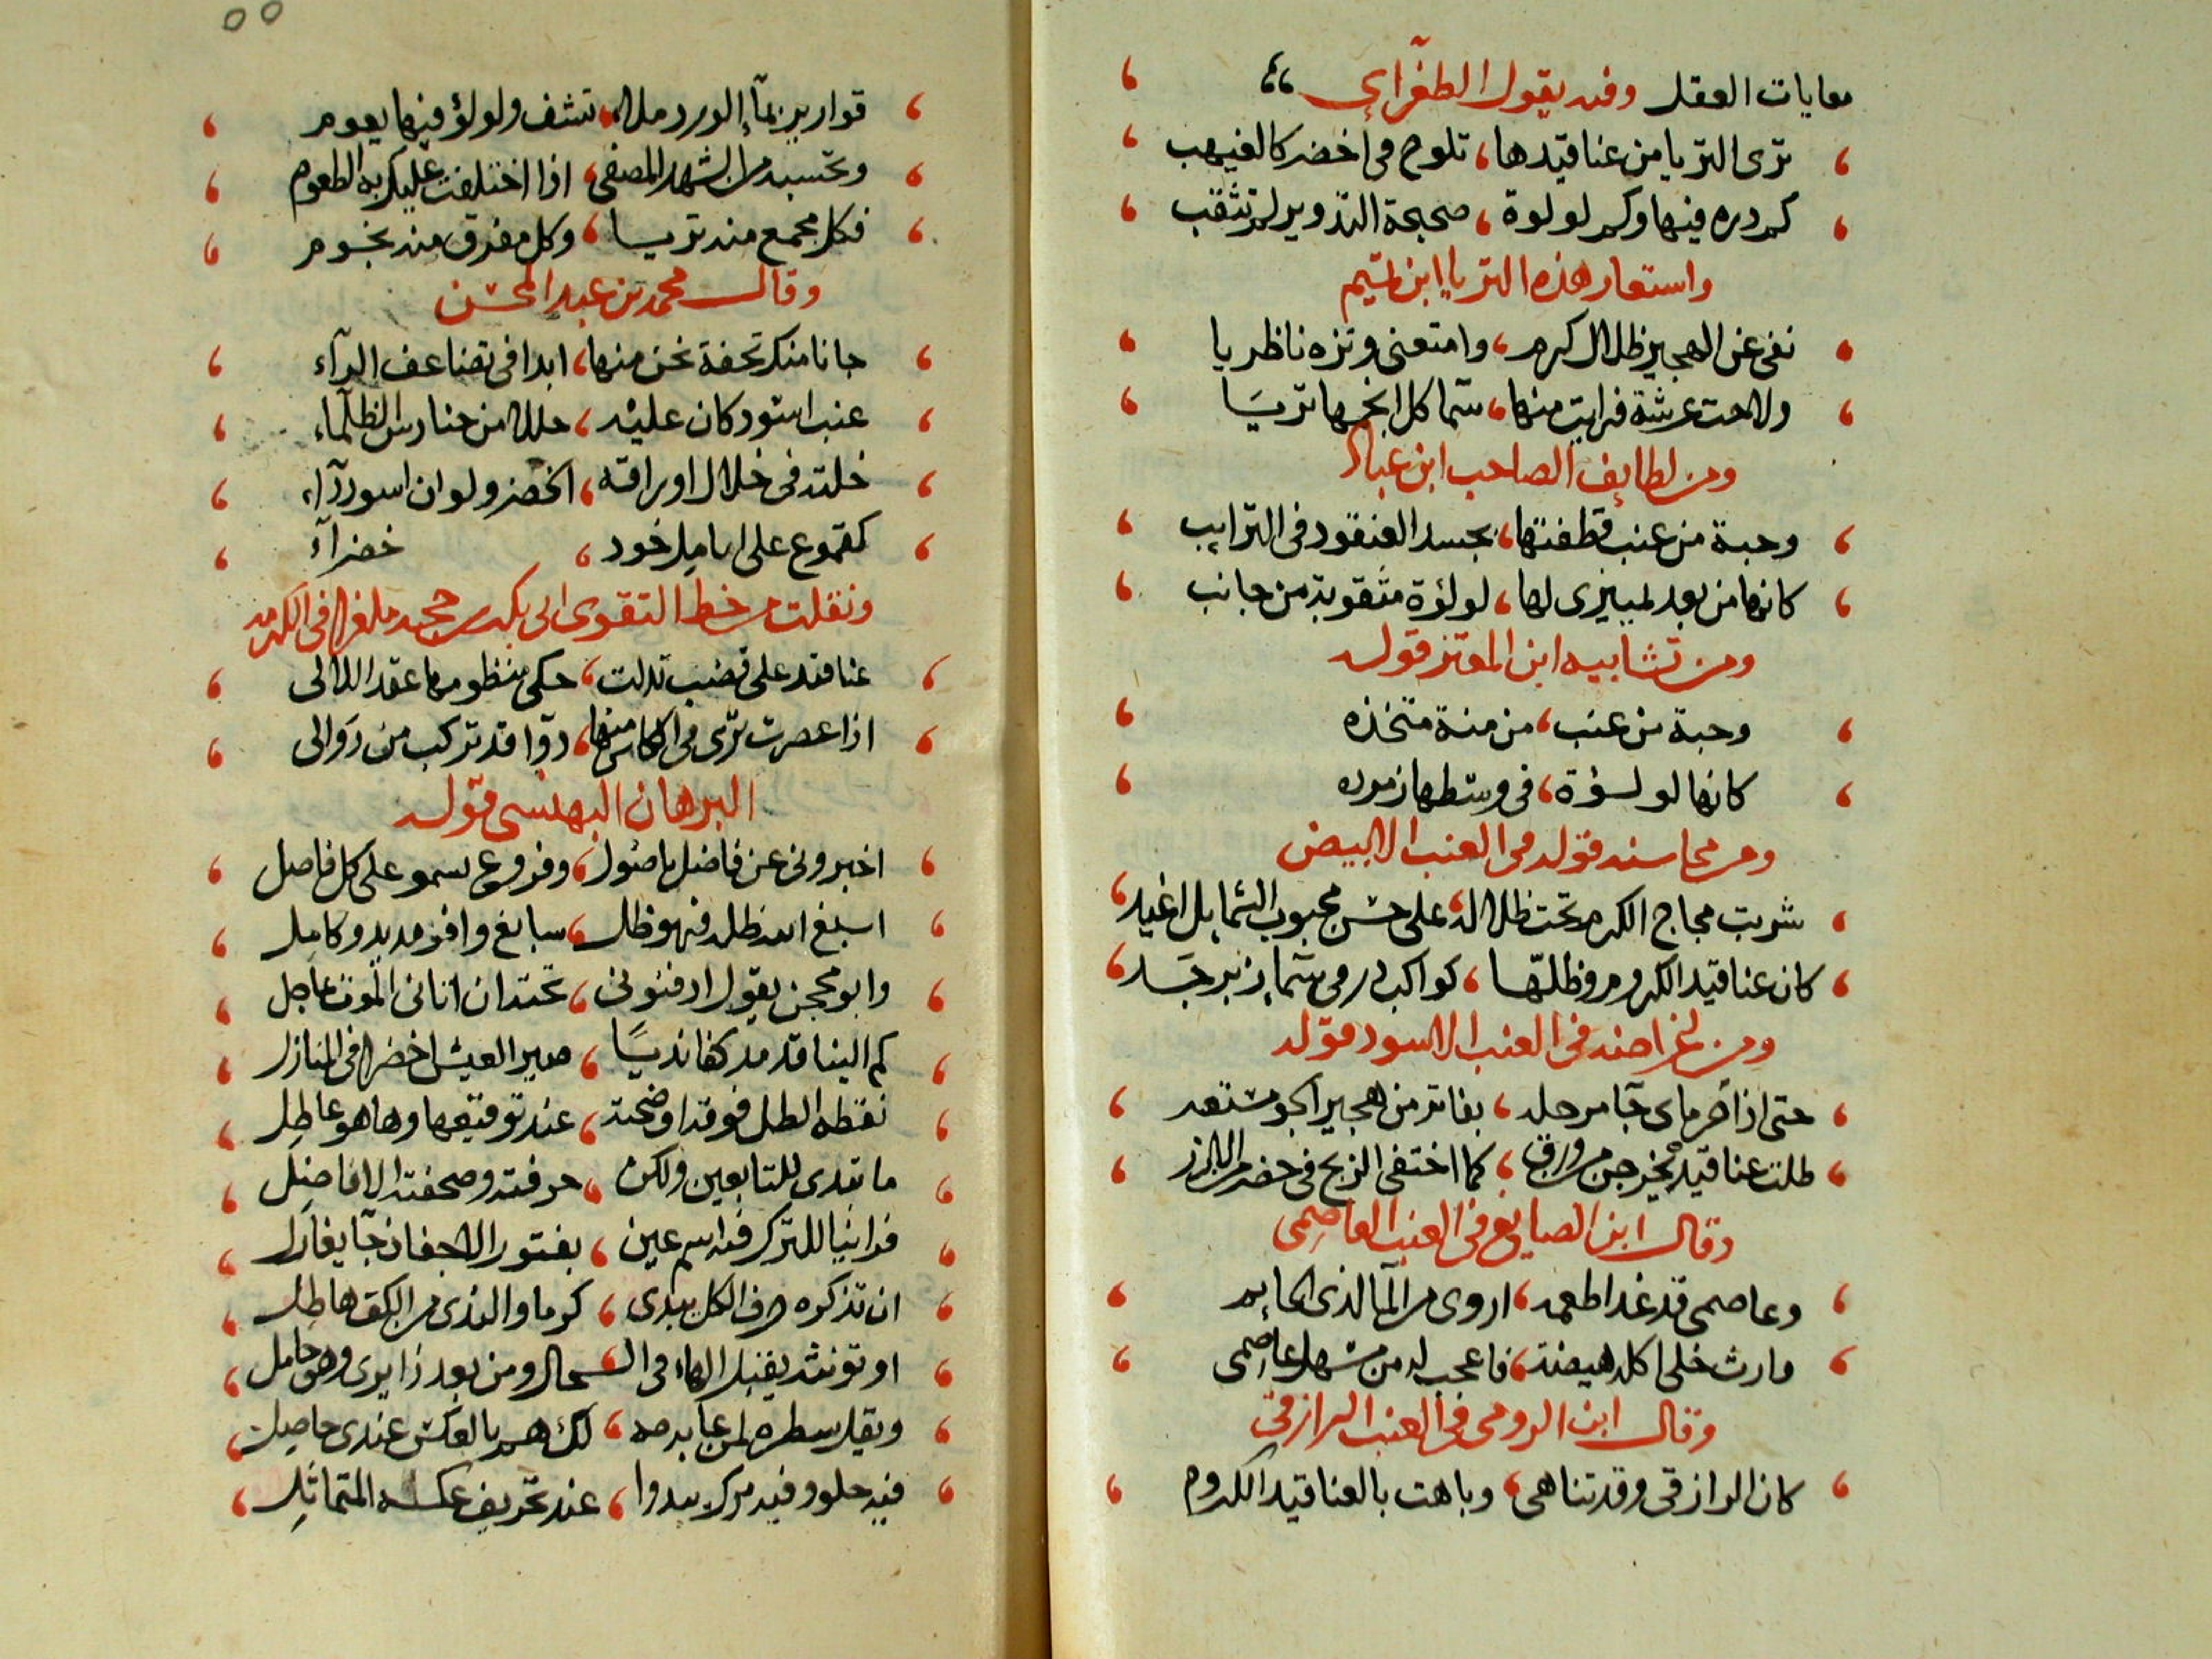 معايات العقل وفيه يقول الطغرآي
ترى الثريا من عناقيدها، تلوح في اخضر كالغيهب
كم دره فيها وكم لولوة، صحيحة التدوير لم تثقب
واستعار هذه الثريا ابن تميم
نفى عن الهجير ظلال كرم، وامتعنى ونزه ناظريا
ولاحت عرشة فرايت منها، سمآ كل انجمها تريا
ومن لطايف الصاحب ابن عباد
وحبة من عنب قطفتها، تحسدها العنقود في الترايب
كانها من بعد تمييزى لها، لولؤة مثقوبة من جانب
ومن تشابيه ابن المعتز قوله
وحبة من عنب، من منة متخذه
كانها لولؤة، في وسطها زمرده
ومن محاسنه قوله في العنب الابيض
شربت مجاج الكرم تحت ظلاله، على حسن محبوب الشمايل اغيد
كان عناقيد الكروم وظلها، كواكب در في سمآ زبرجد
ومن اغراضه في العنب الاسود قوله
حتى اذا حر ماى جآ مرجله، بفاتر من هجير الجو مستعر
ظلت عناقيده يخرجن من ورق، كما اختفى الزنج في خضر من الازر
وقال ابن الصايغ في العنب العاصمي
وعاصمى قد غدا طعمه، اروى من المآ الذى
وارث خلى اكله هيضة، فاعجب له من مسهل عاصمى
وقال ابن الرومي في العنب الرازقي
كان الرازقى وقد تناهى، وباهت بالعناقيد الكروم
٥٥
قوارير بمآ الورد ملا، تشف ولولؤ فيها يعوم
وتحسبه من الشهد المصفى، اذا اختلفت عليك به الطعوم
فكل مجمع منه تريا، وكل مفرق منه نجوم
وقال محمد بن عبد المحسن
جانا منك تحفة نحن منها، ابدا في تضاعف الآء
عنب اسود كان عليه، حللا من حنادس الظلماء
خلته في خلال اوراقه، الخضر ولو ان اسودآ،
كقموع على انامل خود، خضرآء
ونقلت من خط التقوى ابى بكر بن حجه ملغزا في الكرمه
عناقده على قضب تدلت، حكى منظومها عقد اللالى
اذا عصرت ترى في الكاس منها، دوآ قد تركب من دوالى
البرهان البهنسى قوله
اخبرونى عن فاضل باصول، وفروع سمو على كل فاصل
اسبغ الله ظله فهو ظل، سابغ وافر مديد وكامل
وابو محجن يقول ادفنونى، تحته ان اتانى الموت عاجل
كم الينا قد مد كفا نديا، صير العيش اخضرا في المنازل
نقطه الطل فوقه اوضحته، عند توقيعها وها هو عاطل
ما تبدى للتابعين ولكن، حرفته وصحفته الافاضل
فراينا للترك فيه اسم عين، بفتور الاجفان جآ يغازل
ان تذكره صرف الكل يبدى، كرما والندى من الكف هاطل
او تونثه يقبل الهاء في الحال ومن بعد ذا يرى وهو حامل
ويقل سطره لمن عابه مه، لك هم بالعكس عندى حاصل
فيه حلو وفيه مر يبدوا، عند تحريف عكسه المتماثل